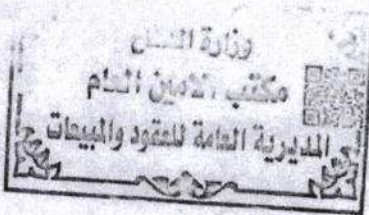 وزارة
مكتب الأمين العام
المديرية العامة للعقود والمبيعات